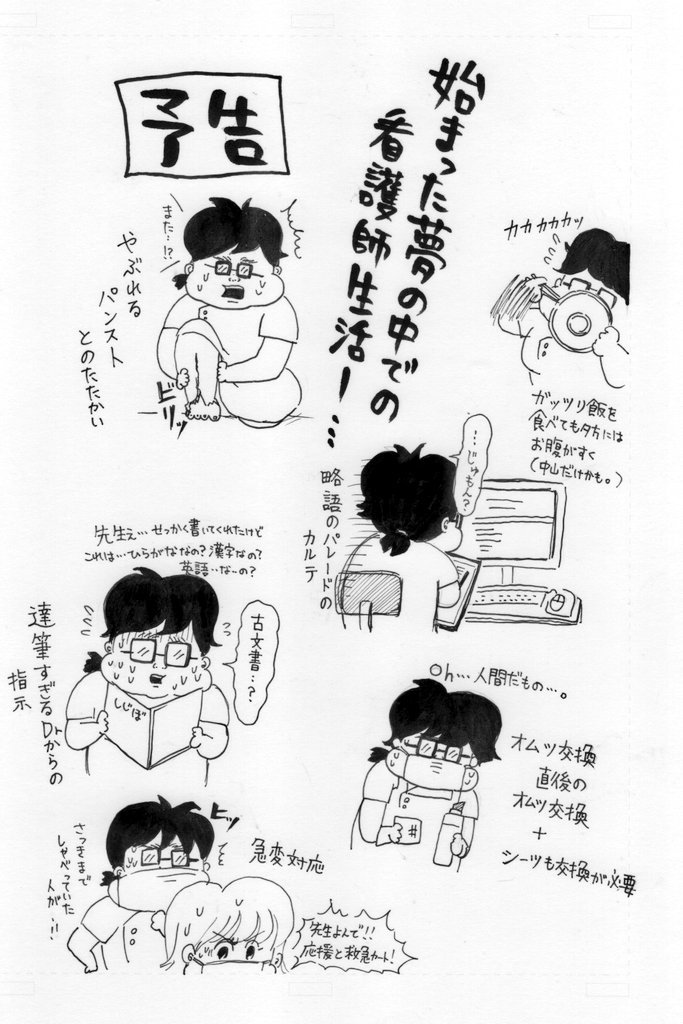 予告
始まった夢の中での
看護師生活ー…
カカカカカッ
ガッツリ飯を
食べても夕方には
お腹がすく
(中山だけかも。)
また…!?
やぶれる
パンスト
とのたたかい
ビリッ
…じゅもん?
略語のパレードの
カルテ
先生ぇ…せっかく書いてくれたけど
これは…ひらがななの?漢字なの?
英語…なの?
古文書…?
しじぼ
達筆すぎるDrからの
指示
Oh…人間だもの…。
オムツ交換
直後の
オムツ交換
+
シーツも交換が必要
#
ビッ
急変対応
さっきまで
しゃべっていた
人が…!!
先生よんで!!
応援と救急カート!